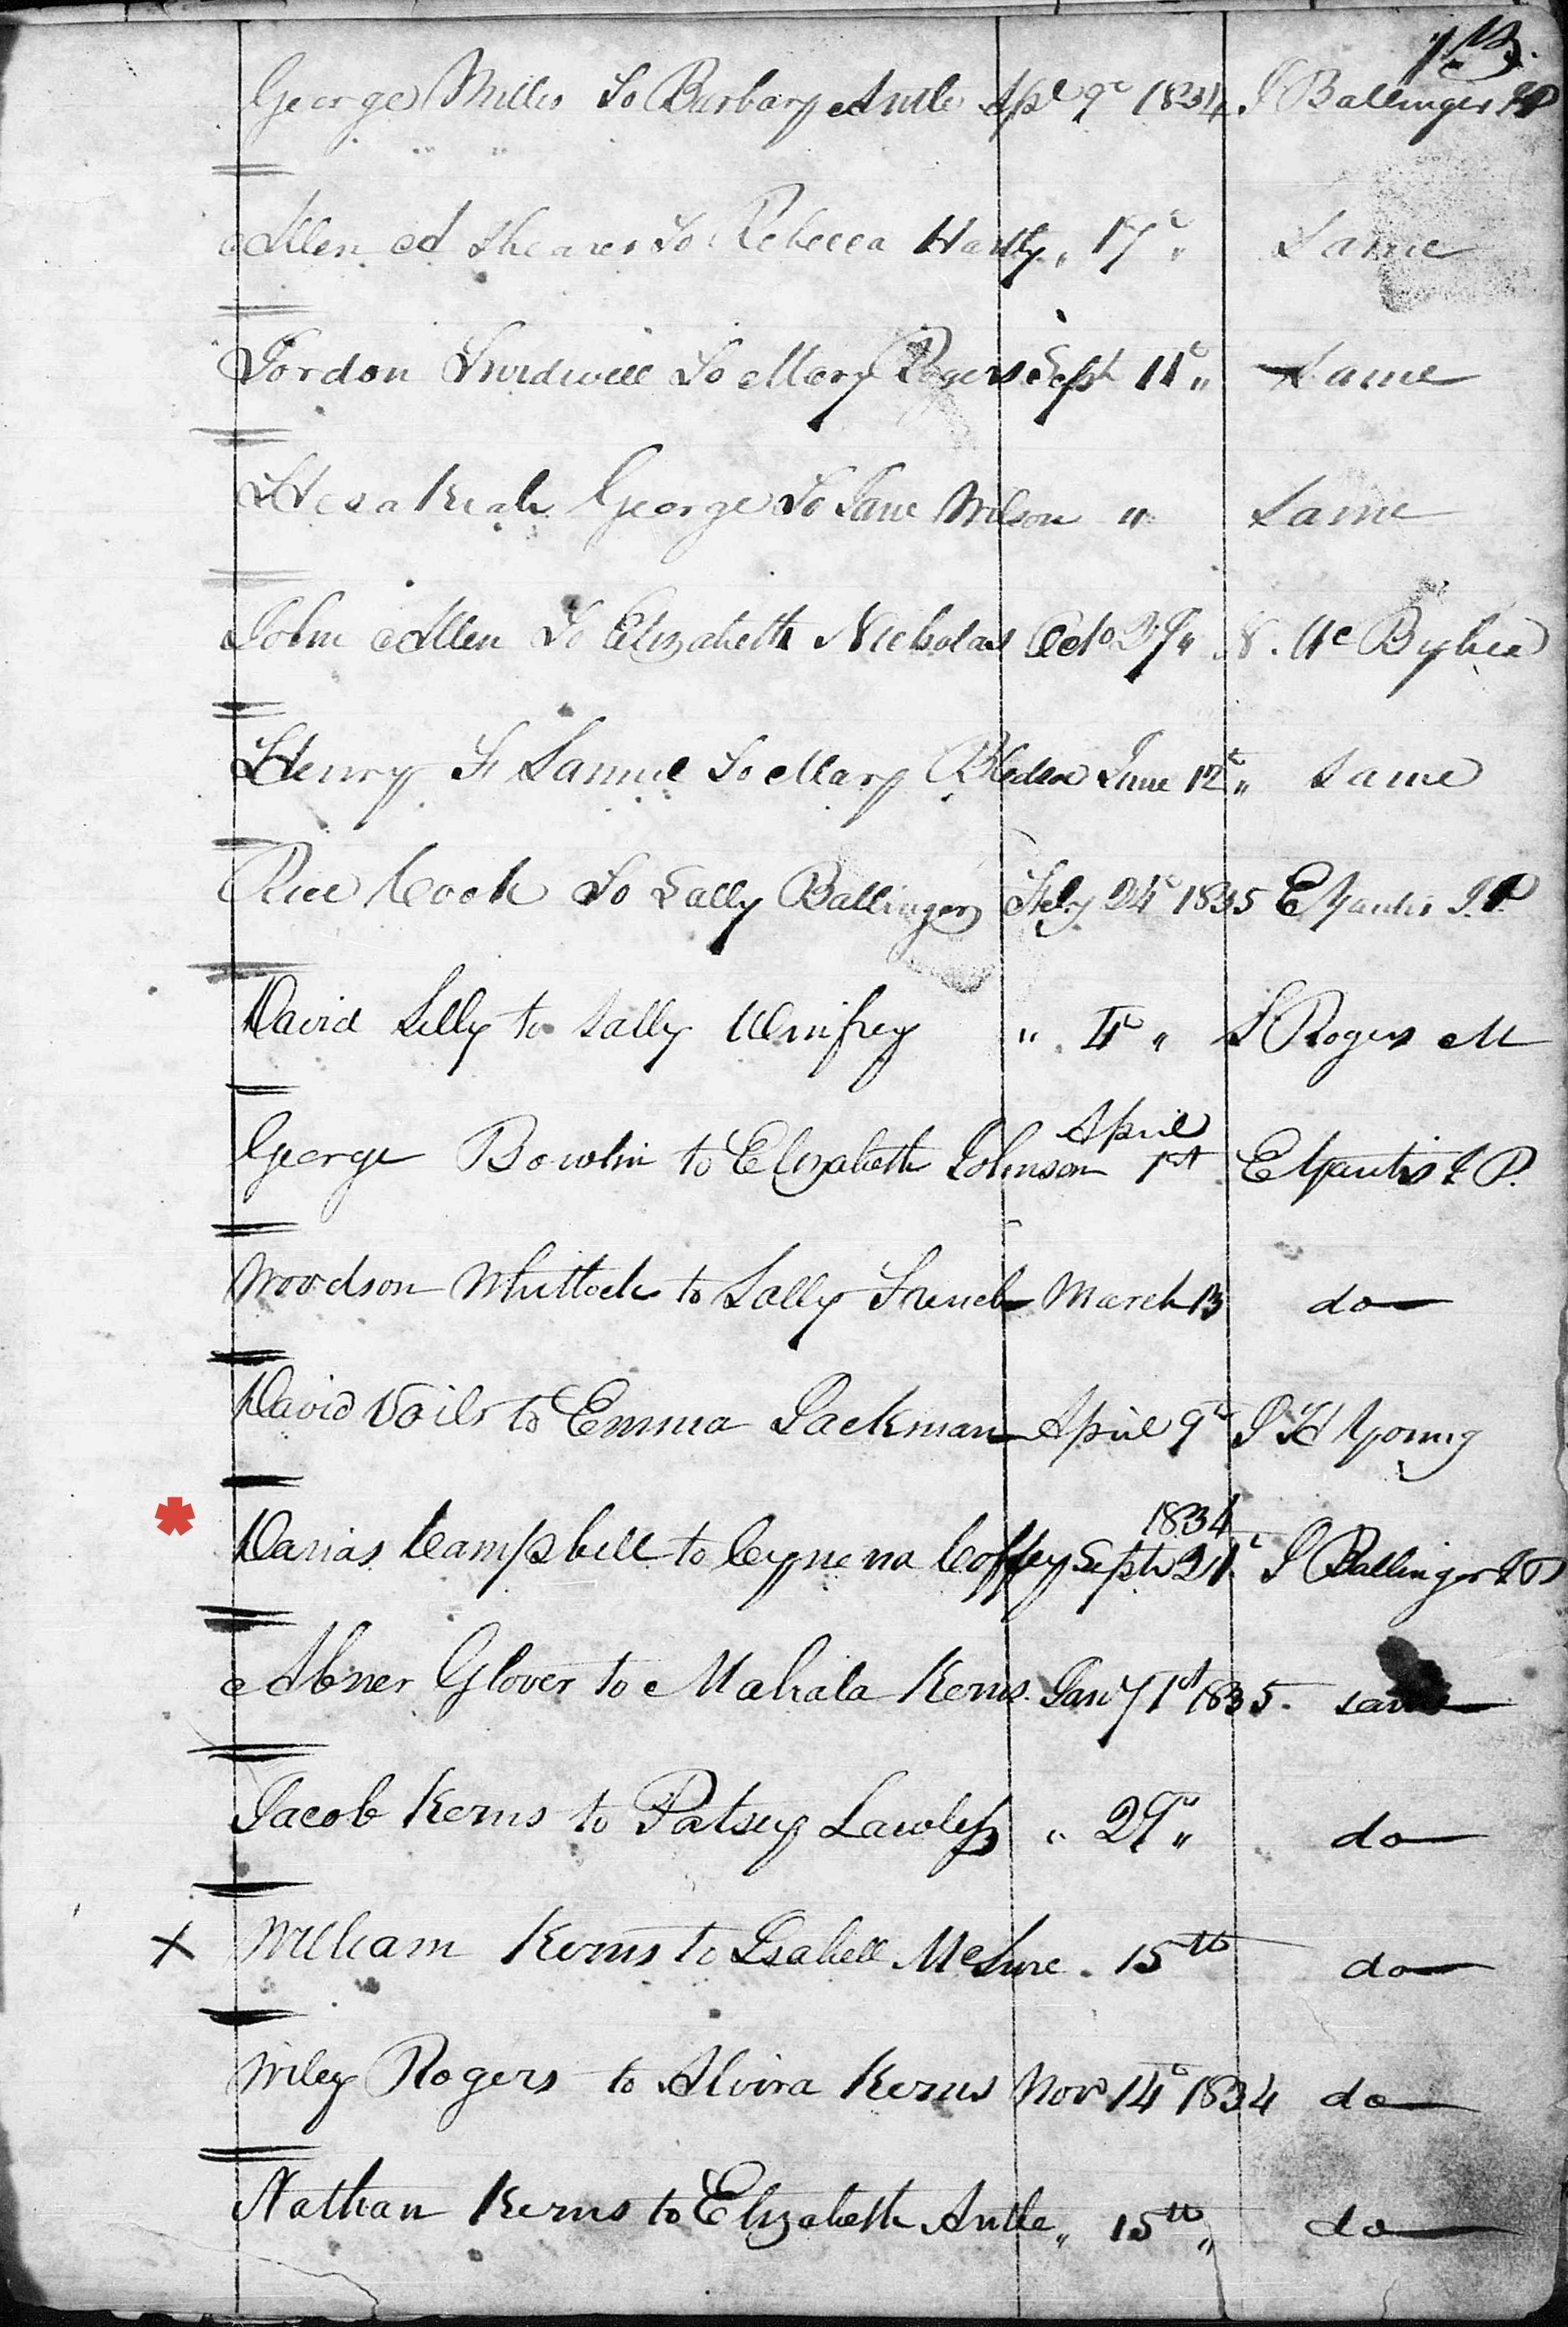 George Miller To Barbary Antle Apl 9th 1834 J Ballinger JP
Allen A Shearer To Rebecca Hardy " 17th " Same
Gordon Tredwell To Mary Rogers Sept 11th " Same
Hezakiah George To Jane Wilson " Same
John Allen To Elizabeth Nicholas Octo 29 " N. McBybee
Henry F Samuel To Mary Bledsoe June 12th " Same
Rice Cook To Sally Ballinger Feby 24th 1835 E Yantis J.P
David Lilly to Sally Winfrey " 4th " S Rogers M
April
George Bowlin to Elizabeth Johnson 1st E Yantis J P.
Woodson Whitlock to Sally French March 13 do
David Voils to Emma Jackman April 9th J H Young
1834
Darias Campbell to Cyrena Coffey Sept 21t J Ballinger J P
Abner Glover to Mahala Kerns. Jany 1st 1835. same
Jacob Kerns to Patsey Lawless " 29th " do
x William Kerns to Isabell McLure. 15th do
Wiley Rogers to Alvira Kerns Nov 14th 1834 do
Nathan Kerns to Elizabeth Antle " 15th " do